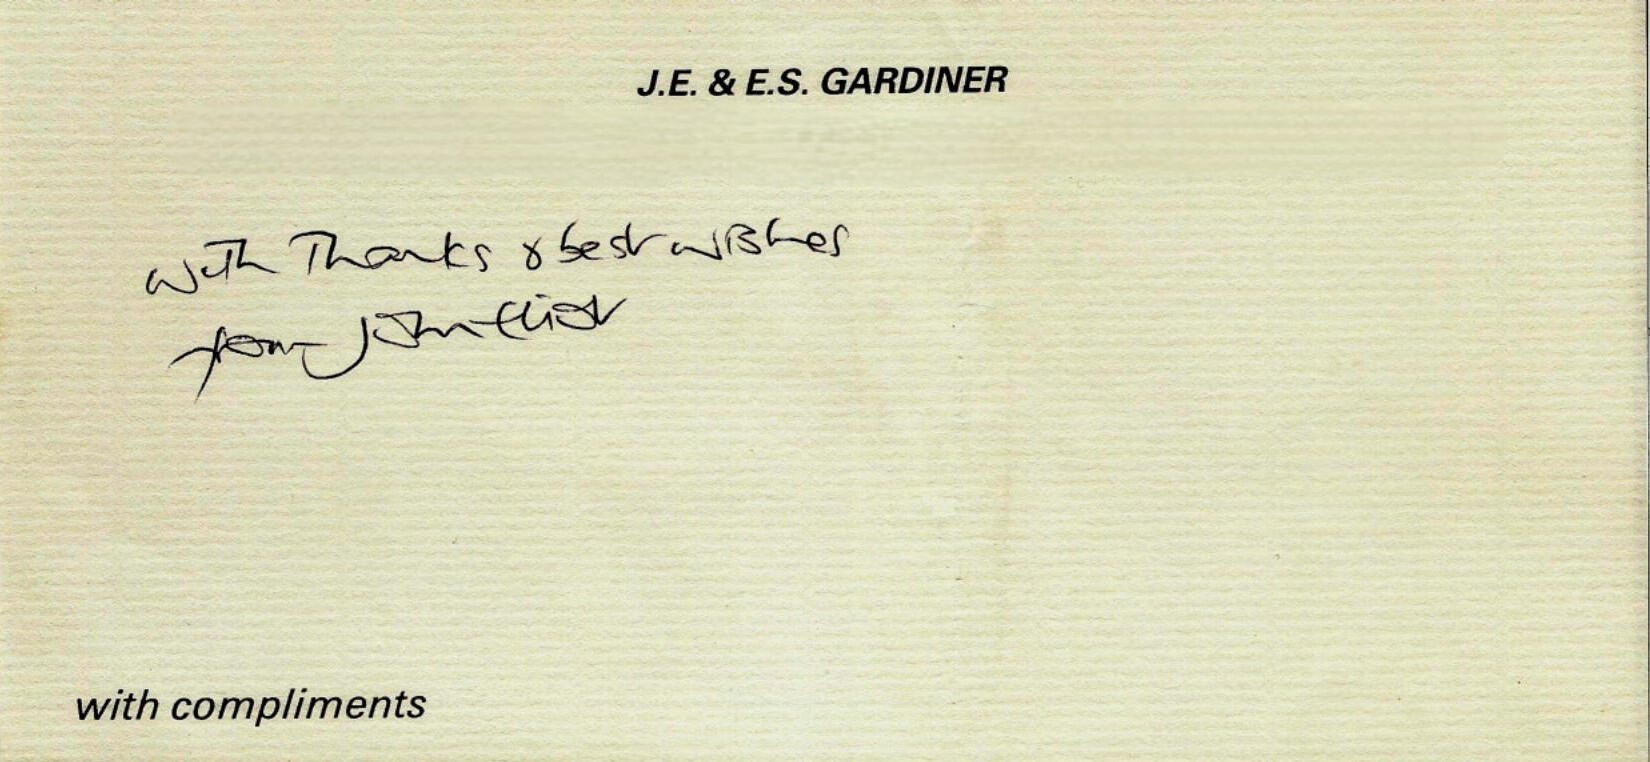 J.E. & E.S. GARDINER
With Thanks & best wishes
from John Eliot
with compliments